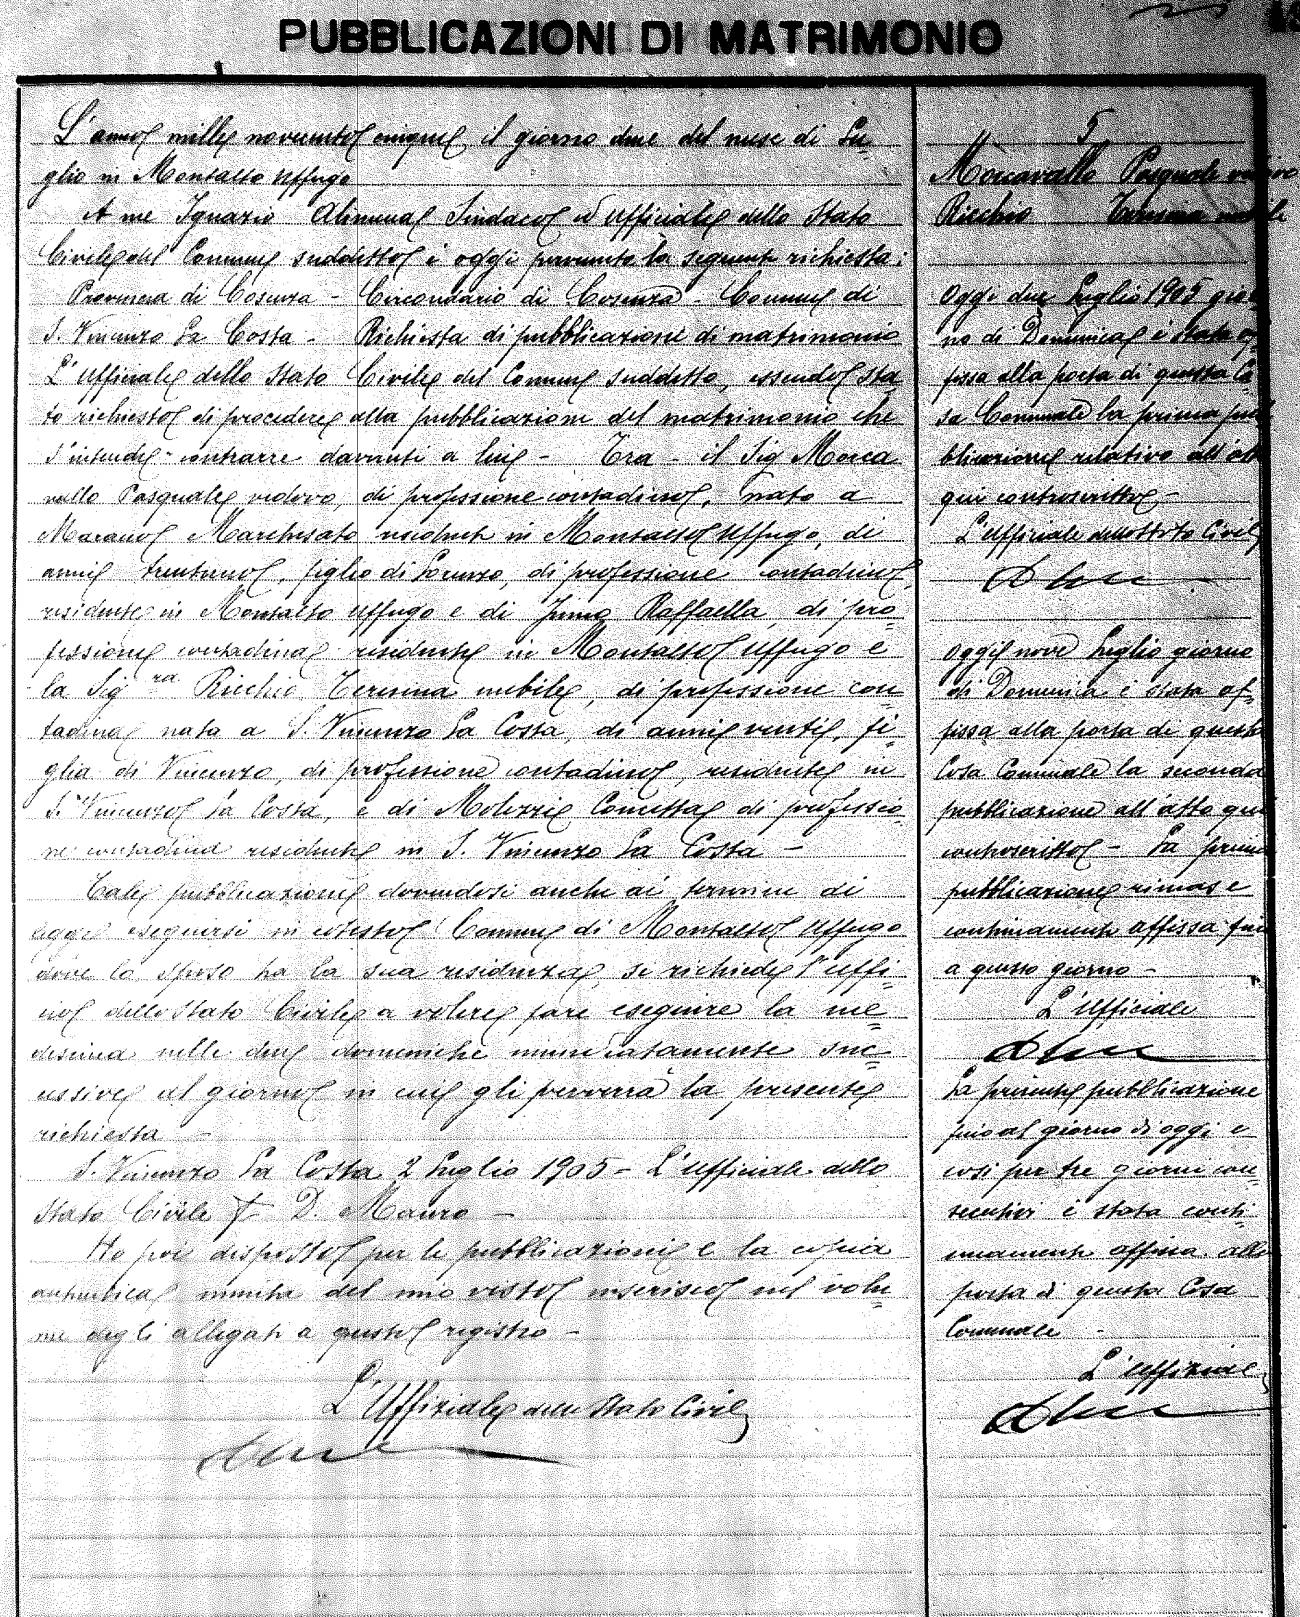 PUBBLICAZIONI DI MATRIMONIO
L'anno mille novecento cinque il giorno due del mese di Lu=
glio in Montalto Uffugo
A me Ignazio Alimena Sindaco ed Ufficiale dello Stato
Civile del Comune suddetto è oggi pervenuta la seguente richiesta:
Provincia di Cosenza - Circondario di Cosenza - Comune di
S. Vincenzo La Costa - Richiesta di pubblicazione di matrimonio
L'Ufficiale dello Stato Civile del Comune suddetto, essendo sta
to richiesto di procedere alla pubblicazione del matrimonio che
s'intende contrarre davanti a lui - Tra - il Sig Morca
vallo Pasquale vedovo, di professione contadino, nato a
Marano Marchesato residente in Montalto Uffugo, di
anni trentuno, figlio di Lorenzo, di professione contadino,
residente in Montalto Uffugo e di Raffaella, di pro=
fessione contadina residente in Montalto Uffugo e
la Sig.ra Ricchio Teresina nubile, di professione con=
tadina nata a S. Vincenzo La Costa, di anni venti, fi=
glia di Vincenzo, di professione contadino, residente in
S. Vincenzo La Costa, e di di professio=
ne contadina residente in S. Vincenzo La Costa -
Tale pubblicazione dovendosi anche ai termini di
legge eseguirsi in cotesto Comune di Montalto Uffugo
dove lo sposo ha la sua residenza, si richiede l'uffi=
cio dello Stato Civile a volere fare eseguire la me=
desima nelle due domeniche immediatamente suc=
cessive al giorno in cui gli perverrà la presente
richiesta -
S. Vincenzo La Costa 2 Luglio 1905 - L'Ufficiale dello
Stato Civile D. Mauro -
Ho poi disposto per le pubblicazioni e la copia
autentica munita del mio visto inserisco nel volu=
me degli allegati a questo registro -
L'Uffiziale dello Stato Civile
5
Morcavallo Pasquale vedovo
Ricchio Teresina nubile
Oggi due Luglio 1905 gior
no di Domenica è stata af
fissa alla porta di questa Ca
sa Comunale la prima pub
blicazione relativa all'atto
qui controscritto -
L'Ufficiale dello Stato Civile
Oggi nove Luglio giorno
di Domenica è stata af=
fissa alla porta di questa
Casa Comunale la seconda
pubblicazione all'atto qui
controscritto - La prima
pubblicazione rimase
continuamente affissa fino
a questo giorno -
L'Ufficiale
La presente pubblicazione
fino al giorno di oggi e
così per tre giorni con=
secutivi è stata conti=
nuamente affissa alla
porta di questa Casa
Comunale -
L'Uffiziale